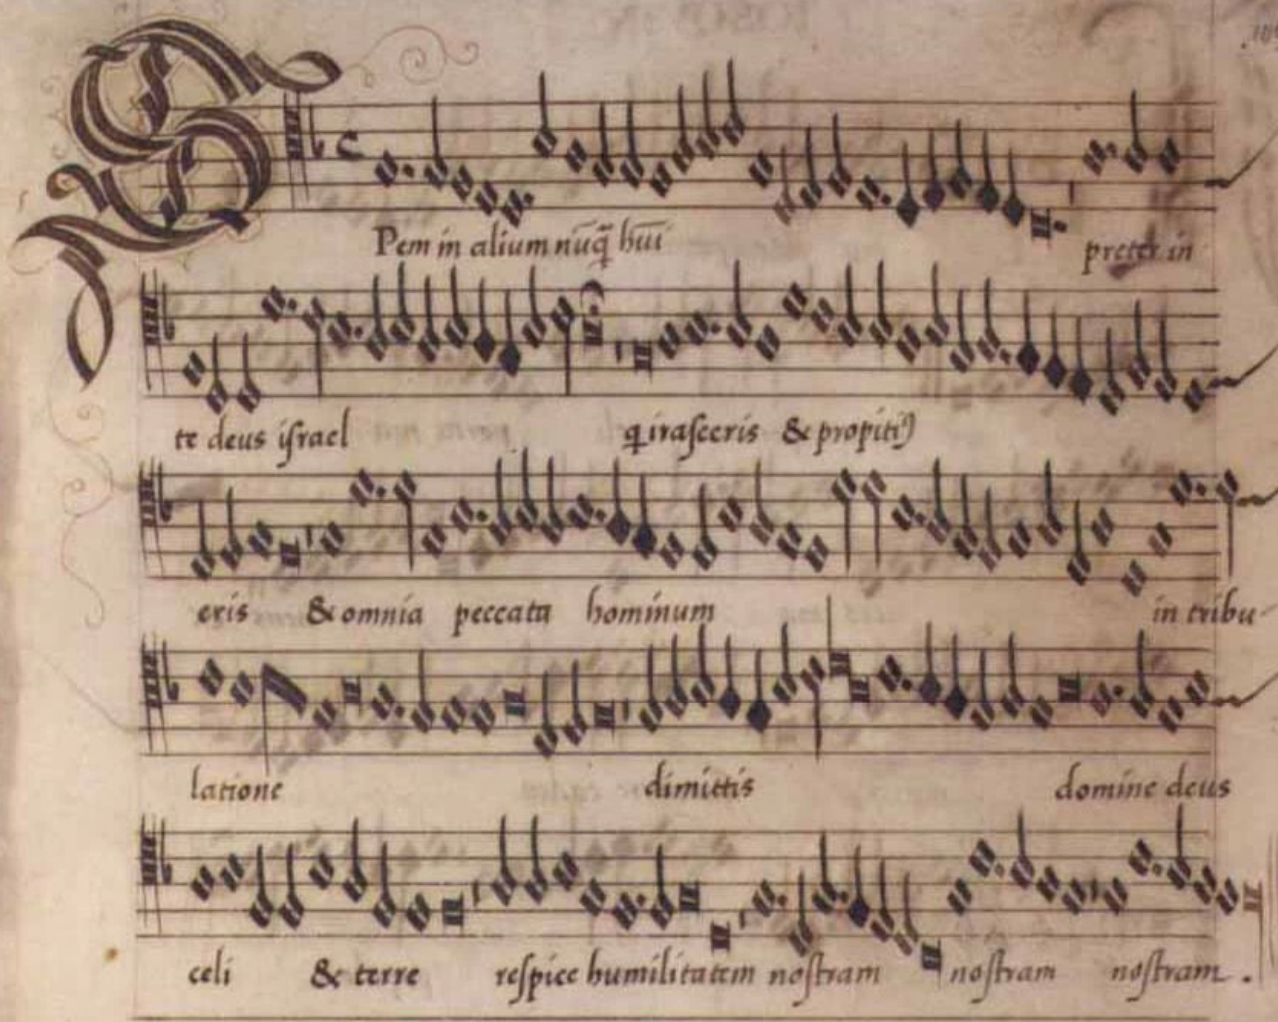 SPem in alium nūq̄ hūi preter in
te deus iſrael q iraſceris & propiti9
eris & omnia peccata hominum in tribu-
latione dimittis domine deus
celi & terre reſpice humilitatem noſtram noſtram noſtram.